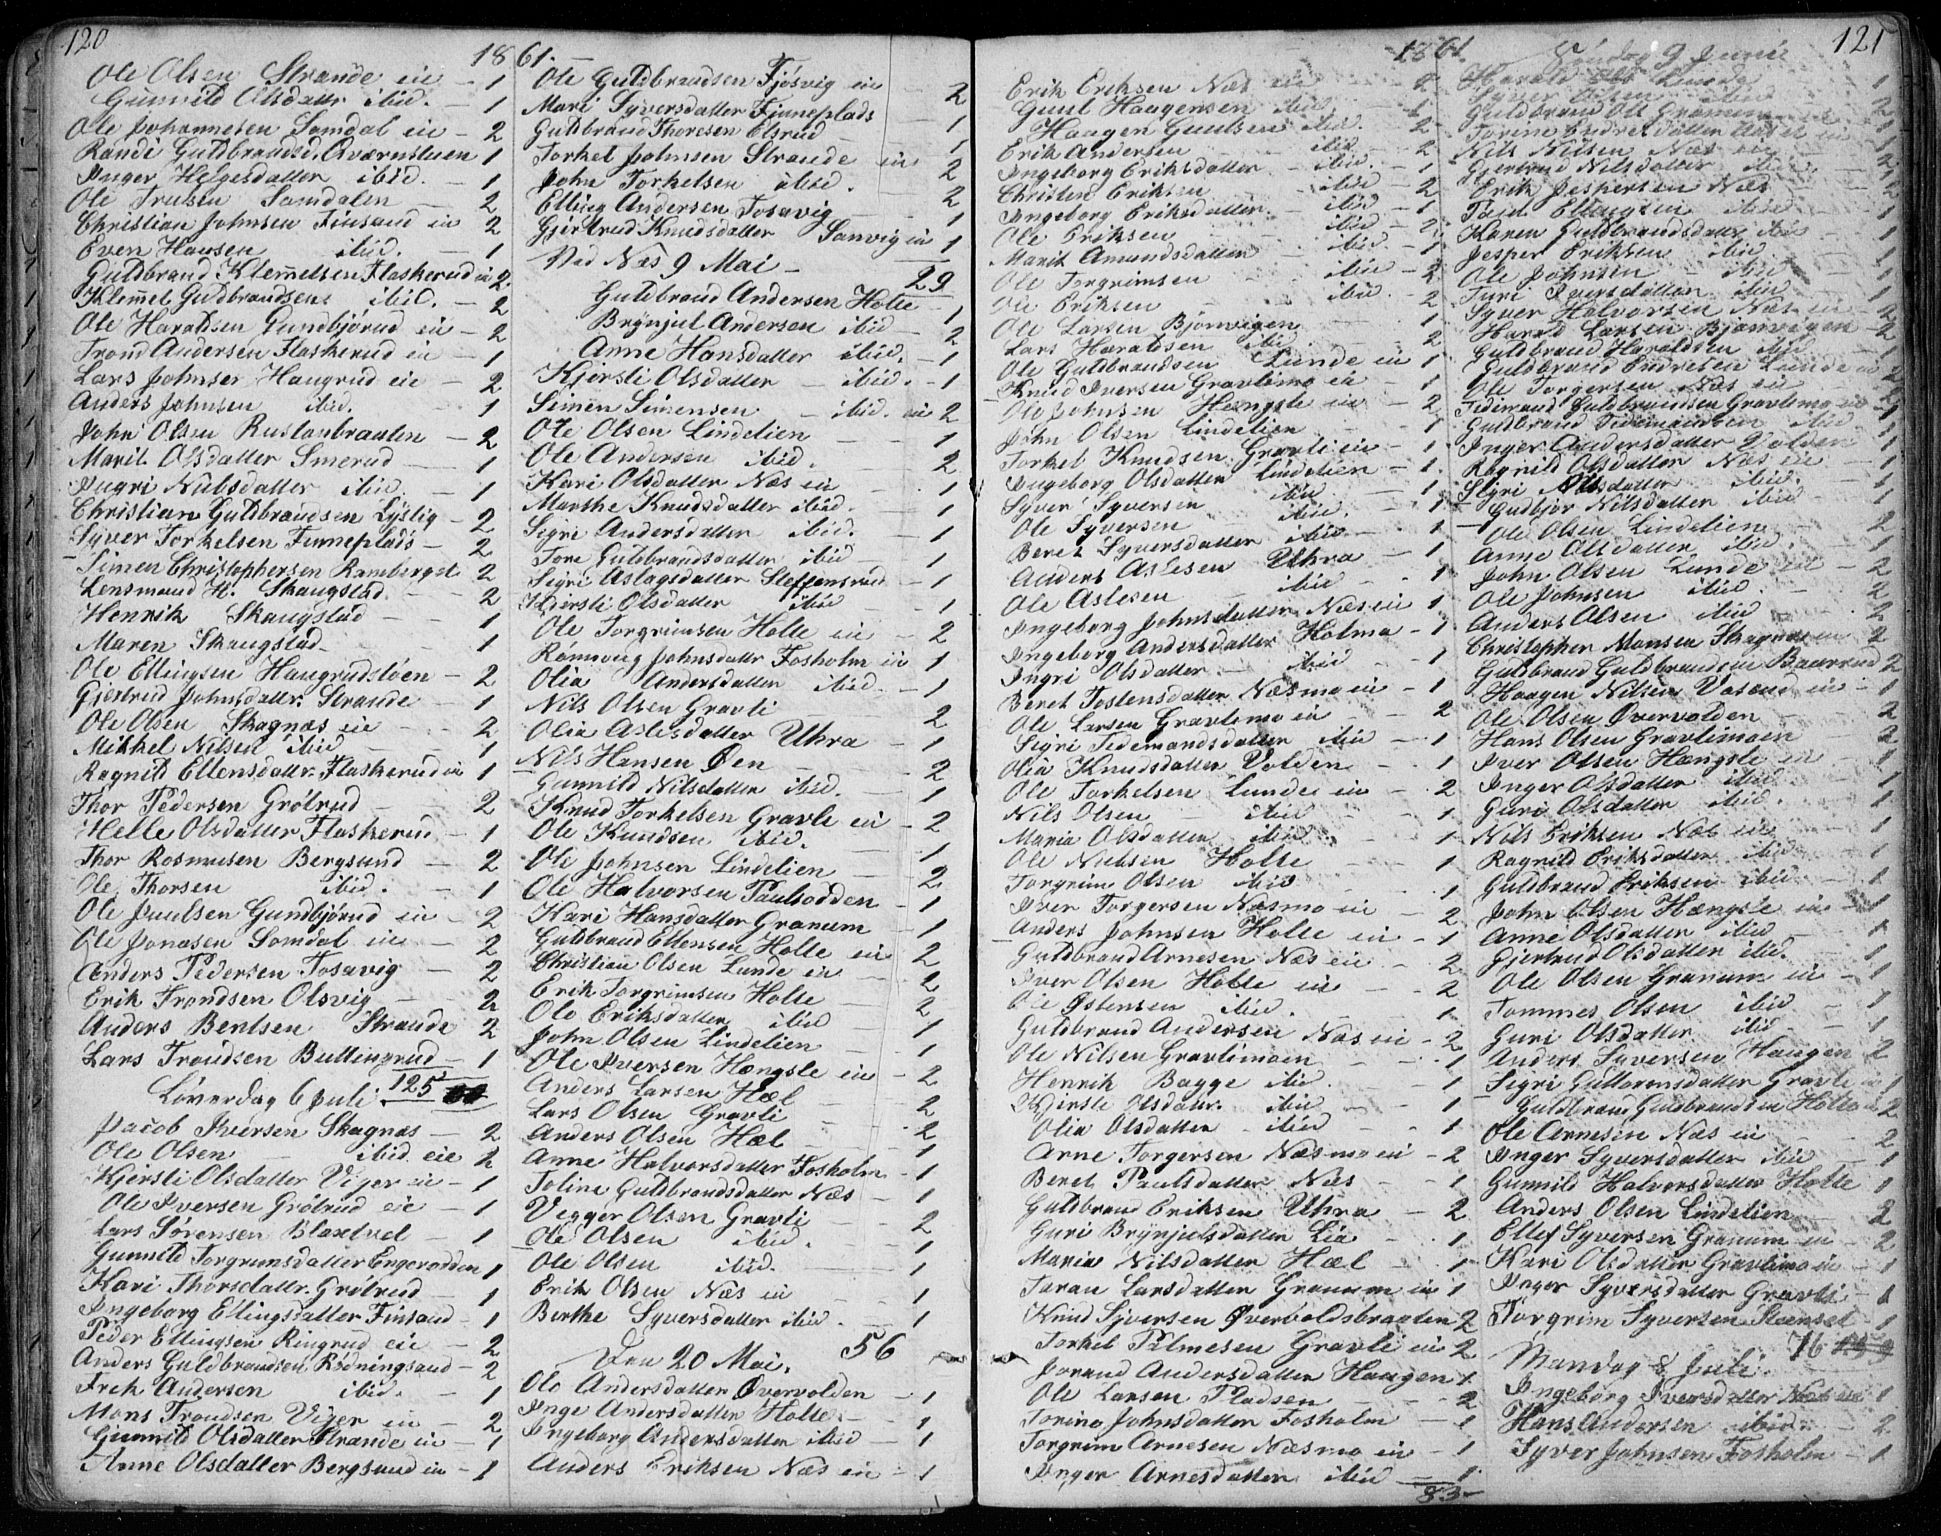 120
1861.
Ole Olsen Strande eie - 1
Gunnild Olsdatter ibid. - 1
Ole Johannesen Samdal eie - 2
Randi Guldbrandsd. Qværnstuen 1
Inger Helgesdatter ibid. - 1
Ole Trulsen Samdalen - 2
Christian Johnsen Finsand eie 2
Even Hansen ibid. - 1
Guldbrand Klemetsen Flaskerud eie 2
Klemet Guldbrandsen ibid. - 2
Ole Haraldsen Gundbjørud eie - 2
Trond Andersen Flaskerud eie - 1
Lars Johnsen Haugrud eie - 2
Anders Johnsen ibid. - 1
John Olsen Rustanbraaten - 2
Marit Olsdatter Smerud - 1
Ingri Nubsdatter ibid. - 1
Christian Guldbrandsen Lyslig - 2
Syver Torkelsen Finneplads - 2
Simen Christophersen Rambergst. 2
Lensmand H. Skaugstad - 2
Henrik Skaugstad - 1
Maren Skaugstad - 1
Ole Ellingsen Haugrudsløen - 2
Gjertrud Johnsdatr. Strande - 1
Ole Olsen Skagnæs eie - 2
Mikkel Nilsen ibid - 1
Ragnild Ellensdatr. Flaskerud eie 1
Thor Pedersen Grøtrud - 2
Helle Olsdatter Flaskerud - 1
Thor Rosmusen Bergsund - 2
Ole Thorsen ibid. - 1
Ole Paulsen Gundbjørud eie - 2
Ole Jonasen Somdal eie - 2
Anders Pedersen Tosavig - 2
Erik Trondsen Olsvig - 2
Anders Bentsen Strande 2
Lars Trondsen Buttingrud - 1
125
Løverdag 6 Juli
Jacob Iversen Skagnæs - 2
Ole Olsen - ibid. eie 2
Kjersti Olsdatter Viger eie - 1
Ole Iversen Grøtrud eie - 1
Lars Sørensen Blaxtvel - 1
Gunnild Torgrimsdatter Engerodden 1
Kari Thorsdatr. Grøtrud - 1
Ingeborg Ellingsdatter Finsand - 1
Peder Ellingsen Ringrud eie - 2
Anders Guldbrandsen Rødningsand - 2
Frek Andersen ibid. - 1
Mons Trondsen Viger eie - 2
Gunnild Olsdatter Strande eie - 1
Anne Olsdatter Bergsund eie - 1
Ole Guldbrandsen Fjøsvig eie 2
Mari Syversdatter Finneplads 1
Guldbrand Thoresen Elsrud 1
Torkel Johnsen Strande eie 2
John Torkelsen ibid. 2
Elling Andersen Tosavig 1
Gjertrud Knudsdatter Sanvig eie 1
29
Ved Næs 9 Mai -
Guldbrand Andersen Holte - 1
Brynjul Andersen ibid - 2
Anne Hansdatter ibid. - 1
Kjersti Olsdatter - ibid. - 1
Simen Simensen - ibid. eie 2
Ole Olsen Lindelien - 1
Ole Andersen ibid. 2
Kari Olsdatter Næs eie - 1
Marthe Knudsdatter ibid. - 1
Sigri Andersdatter ibid. - 1
Tore Guldbrandsdatter ibid - 1
Sigri Aslagsdatter Steffensrud - 1
Kjersti Olsdatter ibid - 1
Ole Torgrimsen Holte eie 2
Romoug Johnsdatr Fosholm eie 1
Olia Andersdatter ibid. - 1
Nils Olsen Gravli 2
Olia Aslesdatter Uhra - 1
Nils Hansen Øen - 2
Gunnild Nilsdatter ibid. 1
Knud Torkelsen Gravli eie - 2
Ole Knudsen ibid. 1
Ole Johnsen Lindelien - 2
Ole Halvorsen Paulsodden - 1
Kari Hansdatter Granum - 1
Guldbrand Ellensen Holte eie 2
Christian Olsen Lunde eie - 2
Erik Torgrimsen Holte - 2
Ole Eriksdatter ibid 1
John Olsen Lindelien - 1
Ole Iversen Hængsle eie - 2
Anders Larsen Hæl - 2
Lars Olsen Gravli - 2
Anders Olsen Hæl 1
Anne Halvorsdatter Fosholm - 1
Toline Guldbrandsdatter Næs - 1
Vegger Olsen Gravli 2
Ole Olsen ibid. 1
Ole Olsen ibid. 1
Erik Olsen Næs eie - 1
Berthe Syversdatter ibid. - 1
56
Den 20 Mai.
Ole Andersdatter Øvervolden - 1
Inge Andersdatter Holte - 1
Ingeborg Andersdatter ibid - 1
Anders Eriksen Næs eie - 1
121
1861.
Erik Eriksen Næs eie 2
Guul Haagensen ibid. 1
Haagen Guulsen ibid. 2
Erik Andersen - ibid - 2
Ingeborg Eriksdatter - ibid. - 1
Christen Eriksen ibid - 2
Ingeborg Eriksdatter - ibid - 1
Ole Eriksen ibid - 2
Marit Amundsdatter ibid. - 1
Ole Torgrimsen - ibid - 2
Ole Eriksen ibid. - 2
Ole Larsen Bjønvigen 1
Lars Haraldsen ibid. 2
Ole Guldbrandsen Lunde eie 1
Knud Iversen Gravlimo eie - 1
Ole Johnsen Hængsle eie - 2
John Olsen Lindelien - 1
Torkel Knudsen Gravli eie - 1
Ingeborg Olsdatter Lindelien - 1
Syver Syversen ibid - 1
Ole Syversen ibid. - 1
Beret Syversdatter ibid - 1
Anders Aslesen Uhra - 1
Ole Aslesen ibid - 1
Ingeborg Johnsdatter Næs eie 1
Ingeborg Andersdatter Holma - 1
Ingri Olsdatter - ibid - 1
Beret Tostensdatter Næsmo eie - 1
Ole Larsen Gravlimo eie - 2
Sigri Tedemandsdatter ibid - 1
Olia Knudsdatter Volden - 1
Ole Torkelsen Lunde eie - 2
Nils Olsen - ibid - 1
Maria Olsdatter ibid. 1
Ole Nielsen Holte - 1
Torgrim Olsen ibid 1
Iver Torgersen Næsmo eie - 2
Anders Johnsen Holte eie - 1
Guldbrand Arnesen Næs eie - 2
Iver Olsen Holte eie - 2
Ole Østensen ibid. - 1
Guldbrand Andersen Næs eie - 2
Ole Nilsen Gravlimoen - 1
Henrik Bagge ibid. - 1
Kjersti Olsdatr. ibid - 1
Olia Olsdatter - ibid - 1
Arne Torgersen Næsmo eie - 2
Beret Paulsdatter Næs - 1
Guldbrand Eriksen Uhra - 2
Guri Brynjulsdatter Lia - 1
Maria Nilsdatter Hæl - 1
Taran Larsdatter Granum eie 1
Knud Syversen Øverboldsbraaten 2
Torkel Palmesen Gravli eie 2
Jorand Andersdatter Haagen 1
Ole Larsen Pladsen - 2
Torine Johnsdatter Fosholm - 1
Torgrim Arnesen Næsmo eie - 1
Inger Arnesdatter ibid - 1
83 -
Søndag 9 Junii
Harald Lunde 1
Syver Olsen ibid 1
Guldbrand Ols Granum 2
Torine Endresdatter 1
Nils Nilsen Næs eie - 2
Gjertrud Nilsdatter ibid. 1
Erik Jespersen Næs 2
Ellingsen ibid 1
Karen Guldbrandsdatter ibid - 1
Jesper Eriksen ibid 1
Ole Johnsen - ibid 1
Turi Iversdatter ibid 1
Syver Halvorsen Næs eie - 2
Harald Larsen Bjønvigen - 2
Guldbrand Haraldsen ibid - 1
Guldbrand Endresen Lunde eie 2
Ole Torgersen Næs eie - 2
Tedemand Guldbrandsen Gravlimo eie 2
Guldbrand Tidemandsen ibid. 1
Inger Andersdatter Volden 1
Ragnild Olsdatter Næs eie - 1
Sigri Nilsdatter ibid. - 1
Gudbjør Nilsdatter ibid - 1
Ole Olsen Lindelien - 2
Anne Olsdatter ibid. 1
John Olsen Lunde eie - 2
Ole Johnsen ibid. 2
Anders Olsen ibid 2
Christopher Monsen Skagnæs eie 2
Guldbrand Guldbrandsen Baarrud 2
Haagen Nilsen Vasend eie - 1
Ole Olsen Øvervolden - 2
Hans Olsen Gravlimoen 2
Iver Olsen Hængsle eie - 1
Inger Olsdatter ibid 1
Guri Olsdatter ibid. 1
Nils Eriksen Næs eie - 1
Ragnild Eriksdatter ibid - 1
Guldbrand Eriksen ibid. - 1
John Olsen Hængsle eie - 1
Anne Olsdatter ibid - 1
Gjertrud Olsdatter ibid. - 1
Ole Olsen Granum eie - 1
Tommes Olsen ibid - 1
Guri Olsdatter ibid - 1
Anders Syversen Haugen 2
Sigri Guttormsdatter Gravli eie 1
Guldbrand Guldbrandsen Holte eie 2
Ole Arnesen Næs eie - 2
Inger Syversdatter ibid - 1
Gunnild Halvorsdatter Holte 1
Anders Olsen Lindelien 2
Ellef Syversen Granum eie - 2
Kari Olsdatter Gravlimo eie - 1
Inger Syversdatter Gravli - 1
Torgrim Syversen - 1
76
Mandag 8 Juli
Ingeborg Iversdatter Næs eie 1
Hans Andersen ibid. - 2
Syver Johnsen Fosholm - 1